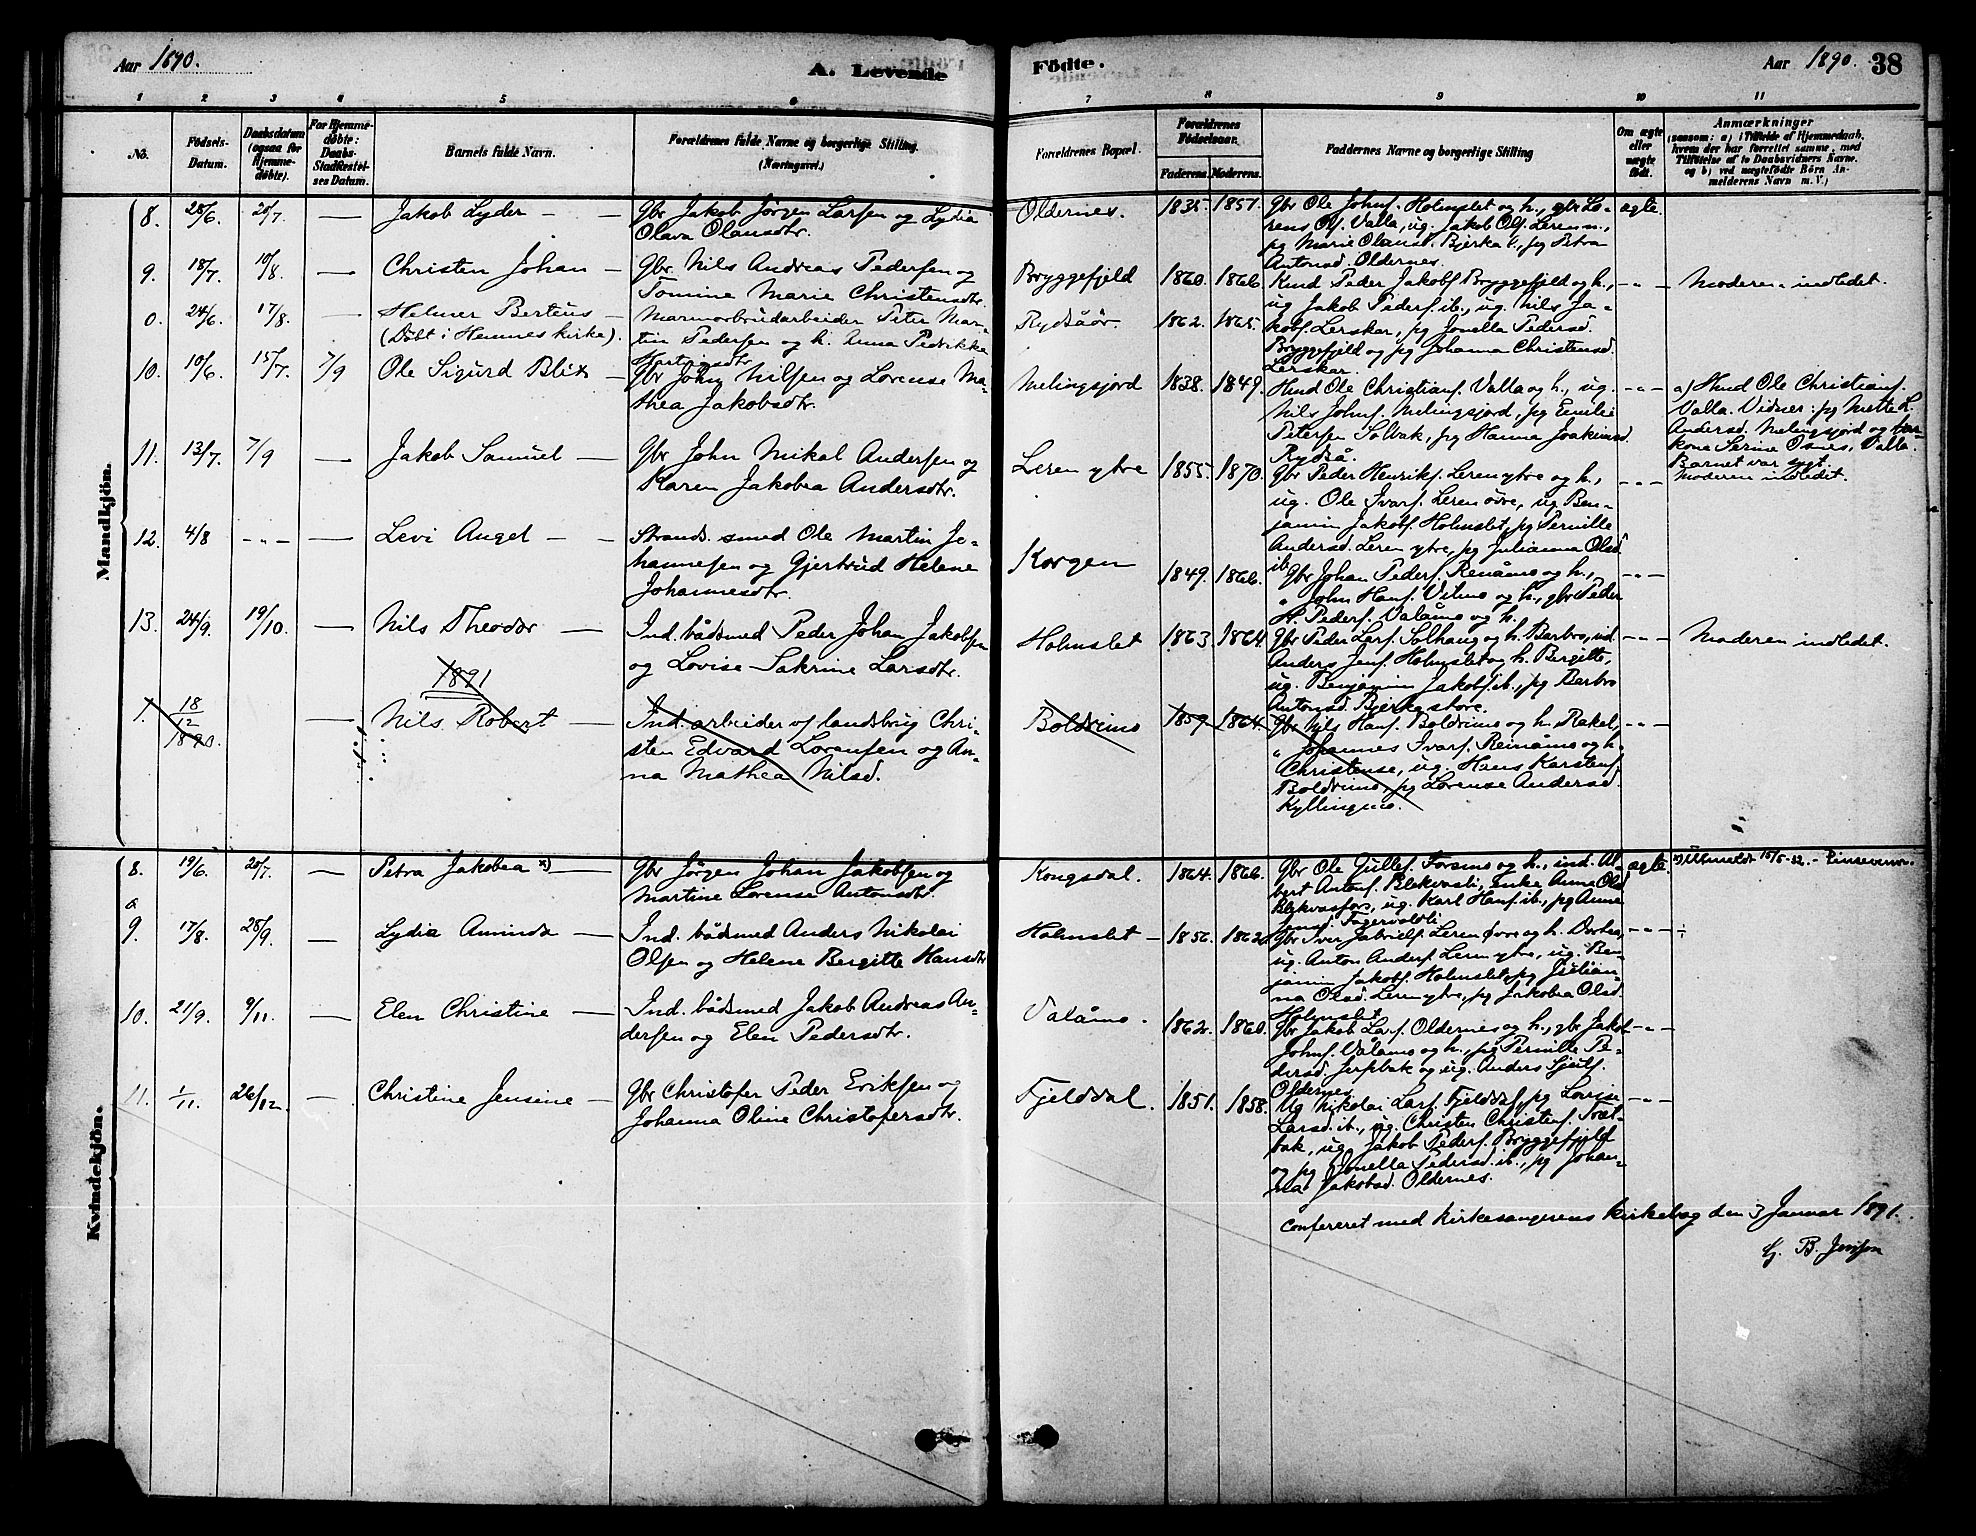 Aar 1890.
A. Levende
Födte.
Aar 1890.
38
1 2 3 4 5 6 7 8 9 10 11
No.
Födsels-
Datum.
Daabsdatum
(ogsaa for
Hjemme-
døbte).
For Hjemme-
døbte:
Daabs-
Stadfæstel-
ses Datum.
Barnets fulde Navn.
Forældrenes fulde Navne og borgerlige Stilling.
(Næringsvei.)
Forældrenes Bopæl.
Forældrenes
Födselsaar.
Faderens. Moderens.
Faddernes Navne og borgerlige Stilling
Om ægte
eller
uægte
födt.
Anmærkninger
(saasom: a) i Tilfælde af Hjemmedaab,
hvem der har forrettet samme, med
Tilföielse af to Daabsvidners Navne,
og b) ved uægtefödte Börn An-
melderens Navn m. V.)
Mandkjön.
8. 28/6. 20/7. — Jakob Lyder — —
Gbr Jakob Jørgen Larsen og Lydia
Olava Olausdtr.
Oldernes. 1835. 1851.
Gbr Ole Johns. Holmslet og h., gbr Lo-
rens Ols. Valla, ug. Jakob Ols. Leren n.,
pg Marie Olausd. Bjerka l., pg Petra
Antonsd. Oldernes.
ægte.
9. 18/7. 10/8. — Christen Johan —
Gbr. Nils Andreas Pedersen og
Tomine Marie Christensdtr.
Bryggefjeld 1860. 1866.
Kmd Peder Jakobs. Bryggefjeld og h.,
ug Jakob Peders. ib., ug. Nils Ja-
kobs. Lerskar, pg Jonella Pedersd.
Bryggefjeld og pg Johanna Christensd.
Lerskar.
— " — Moderen indledet.
0. 24/6. 17/8. — Helmer Berteus —
(Døbt i Hemnes kirke).
Marmorbrudarbeider Peter Mar-
tin Pedersen og h. Anna Fredrikke
Hartvigsdtr.
Rydsåør. 1862. 1865.
10. 10/6. 15/7. 7/9 Ole Sigurd Blix —
Gbr John Nilsen og Lorense Ma-
thea Jakobsdtr.
Melingsjord 1838. 1849.
Hmd Ole Christians. Valla og h., ug.
Nils Johns. Melingsjord, pg Emilie
Petersen Solbak, pg Hanna Joakimsd.
Rydså.
— " —
a) Hmd Ole Christians.
Valla. Vidner: pg Mette L.
Andersd. Melingsjord og
kone Serine Osnes, Valla.
Barnet var sygt.
11. 13/7. 7/9 — Jakob Samuel —
Gbr John Mikal Andersen og
Karen Jakobea Andersdtr.
Leren ytre 1855. 1870.
Gbr Peder Henriks. Leren ytre og h.,
ug. Ole Ivars. Leren øvre, ug Ben-
jamin Jakobs. Holmslet, pg Pernille
Andersd. Leren ytre, pg Julianna Olsd.
ib.
— " — Moderen indledet.
12. 4/8 — " — — Levi Angel — —
Strands. smed Ole Martin Jo-
hannesen og Gjertrud Helene
Johannesdtr.
Korgen 1849. 1866.
Gbr Johan Peders. Renåmo og h.,
" John Hans. Vilmo og h., gbr Peder
A. Peders. Valåmo og h.
— " —
13. 24/9. 19/10. — Nils Theodor —
Ind. bådsmed Peder Johan Jakobsen
og Lovise Sakrine Larsdtr.
Holmslet 1863. 1864.
Gbr Peder Lars. Solhaug og h. Barbro, ind.
Anders Jens. Holmslet og h. Bergitte,
ug. Benjamin Jakobs. ib., pg Barbro
Antonsd. Bjerka store.
— " — Moderen indledet.
1891
1. 18/12 1890. — Nils Robert —
Ind. arbeider v/ landsbrug Chri-
sten Edvard Lorensen og An-
na Mathea Nilsd.
Boldrimo 1859 1864.
Gbr Nils Hans. Boldrimo og h. Rakel,
" Johannes Ivars. Reinåmo og h.
Christense, ug. Hans Karstens.
Boldrimo, pg Lorense Andersd.
Kyllingmo.
— " —
Kvindekjön.
8. 19/6. 20/7. — Petra Jakobea x)
Gbr Jørgen Johan Jakobsen og
Martine Lorense Antonsdtr.
Kongsdal. 1864. 1866.
Gbr Ole Gullef. Forsmo og h., ind. Al-
bert Antons. Blekvasli, enke Anne Olsd
Blekvasfors, ug. Karl Hans. ib., pg Anne
Jensd. Fagervoldli
ægte. x) Utmeldt 15/5-32. - Pinseven.
9. 17/8. 28/9. — Lydia Aminda —
Ind. bådsmed Anders Nikolai
Olsen og Helene Bergitte Hansdtr
Holmslet — 1856. 1862.
Gbr Iver Gabriels. Leren øvre og h. Dorthea,
ug. Anton Anders. Leren ytre, ug. Ben-
jamin Jakobs. Holmslet, pg Julian-
na Olsd. Leren ytre, pg Jakobea Olsd.
Holmslet.
— " — ÷
10. 21/9. 9/11. — Elen Christine —
Ind. bådsmed Jakob Andreas An-
dersen og Elen Pedersdtr.
Valåmo. 1862. 1860.
Gbr Jakob Lars. Oldernes og h., gbr Jakob
Johns. Valåmo og h., pg Pernille Pe-
dersd. Jerpbak og ug. Anders Gjuls.
Oldernes.
— " —
11. 1/11. 26/12. — Christine Jensine —
Gbr Christofer Peder Eriksen og
Johanna Oline Christofersdtr.
Fjelddal. 1851. 1858.
Ug Nikolai Lars. Fjelddal, pg Lovise
Larsd. ib., ug. Christen Christens. Træt-
bak, ug. Jakob Peders. Bryggefjeld
og pg Jonella Pedersd. ib., pg Johan-
na Jakobsd. Oldernes.
— " —
Confereret med kirkesangerens kirkebog den 3 Januar 1891.
G. B. Jenssen